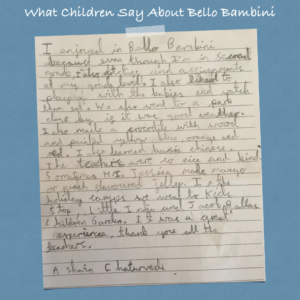 What Children Say About Bello Bambini
I enjoyed in Bello Bambini
because even though I'm in second
grade, I also get fun and assignments
at my grade level. I also liked to
playing with the babies and watch
them too. We also went to a park
close by if it was good weather.
I also made a crocodile with wood
and painted yellow blue, orange and
red. I also learned basic chinese.
The teachers were so nice and kind.
Sometimes Ms. Jessica made mango
or peach flavoured jelly. In the
holiday camps we went to Kids
Stop, Little India and Jacob Ballas
Children Garden. It was a great
experience, thank you all the
teachers.
Chaturvedi